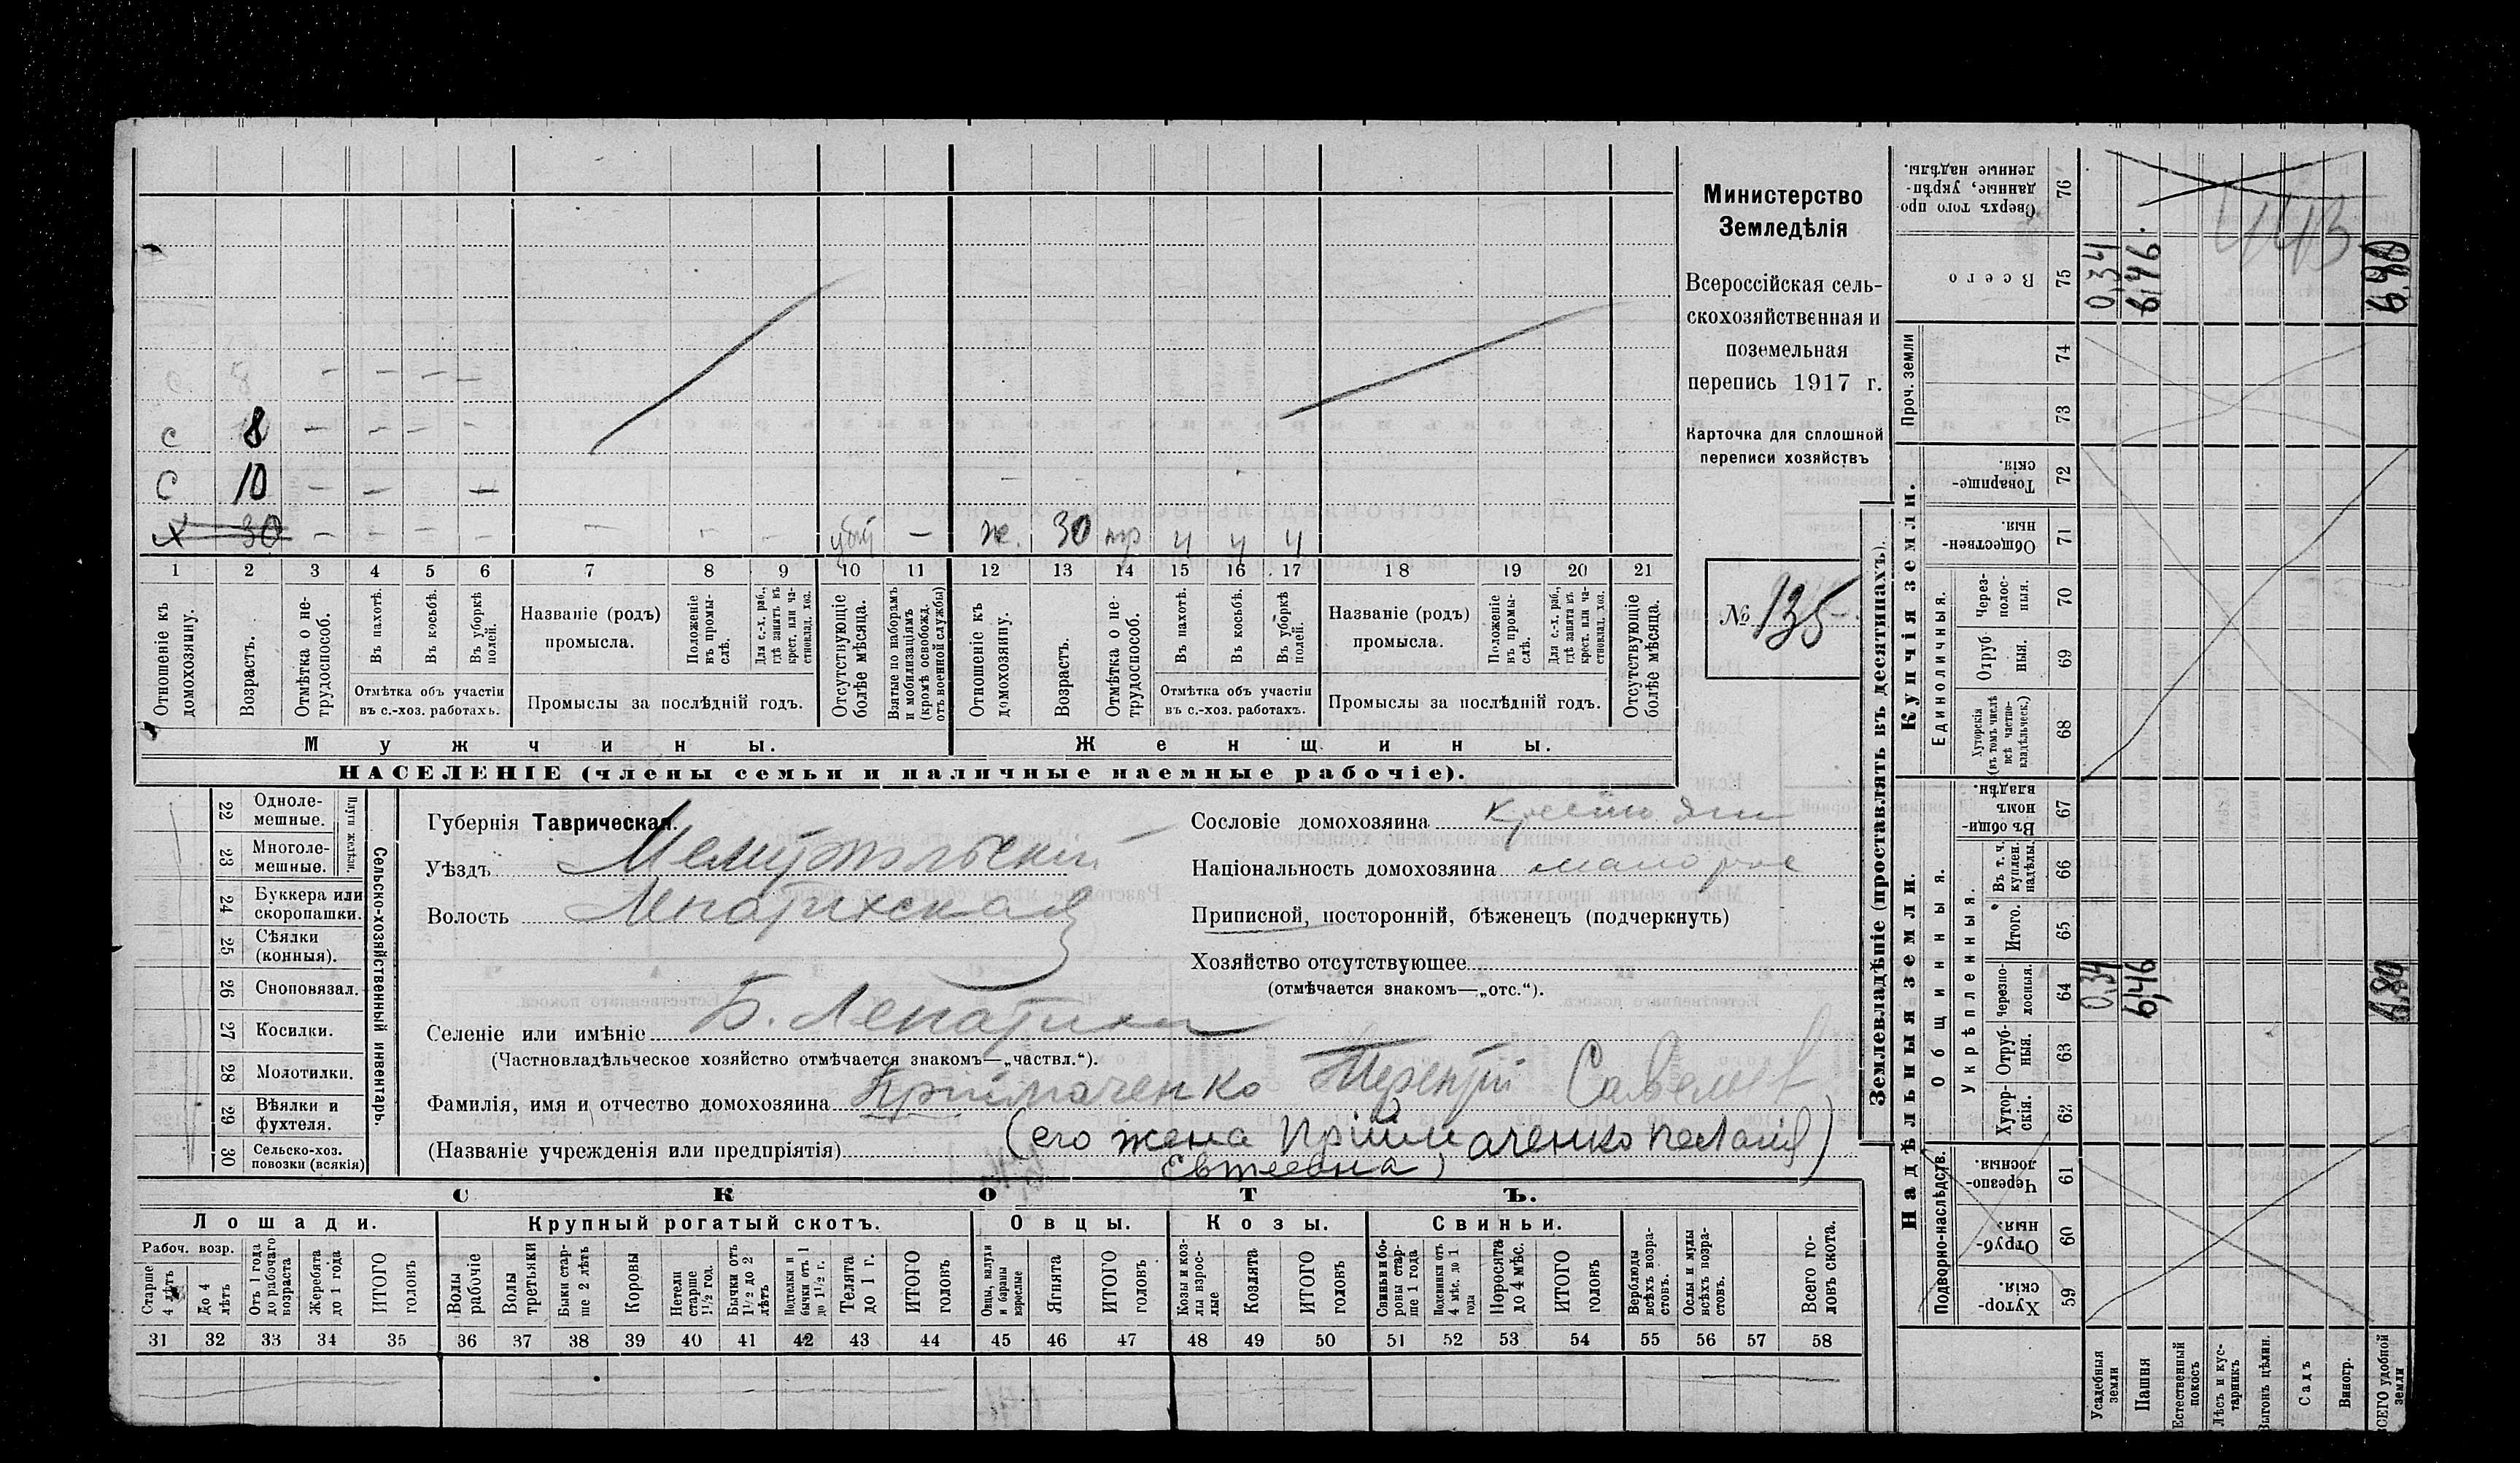 Министерство
Земледѣлія
Всероссійская сель-
скохозяйственная и
поземельная
перепись 1917 г.
Карточка для сплошной
переписи хозяйствъ
№ 135
с 8 – – – –
с 8 – – – –
с 10 – – –
х 30 – – – – – – убит – ж. 30 пр ч ч ч
1 2 3 4 5 6 7 8 9 10 11 12 13 14 15 16 17 18 19 20 21
Отношеніе къ домохозяину.
Возрастъ.
Отмѣтка о не-трудоспособ.
Въ пахотѣ.
Въ косьбѣ.
Въ уборкѣ полей.
Отмѣтка объ участіи въ с.-хоз. работахъ.
Названіе (родъ) промысла.
Положеніе въ промы-слѣ.
Для с.-х. раб., гдѣ занятъ въ крест. или ча-стновлад. хоз.
Промыслы за послѣдній годъ.
Отсутствующіе болѣе мѣсяца.
Взятые по наборамъ и мобилизаціямъ (кромѣ освобожд. отъ военной службы)
Отношеніе къ домохозяину.
Возрастъ.
Отмѣтка о не-трудоспособ.
Въ пахотѣ.
Въ косьбѣ.
Въ уборкѣ полей.
Отмѣтка объ участіи въ с.-хоз. работахъ.
Названіе (родъ) промысла.
Положеніе въ промы-слѣ.
Для с.-х. раб., гдѣ занята въ крест. или ча-стновлад. хоз.
Промыслы за послѣдній годъ.
Отсутствующіе болѣе мѣсяца.
Мужчины. Женщины.
НАСЕЛЕНІЕ (члены семьи и наличные наемные рабочіе).
22 Одноле-мешные.
23 Многоле-мешные.
Плуги желѣзн.
24 Буккера или скоропашки.
25 Сѣялки (конныя).
26 Сноповязал.
27 Косилки.
28 Молотилки.
29 Вѣялки и фухтеля.
30 Сельско-хоз. повозки (всякія)
Сельско-хозяйственный инвентарь.
Губернія Таврическая.
Уѣздъ Мелитопольскій
Волость Лепатихская
Селеніе или имѣніе Б. Лепатиха
(Частновладѣльческое хозяйство отмѣчается знакомъ—„частвл.“).
Фамилія, имя и отчество домохозяина Пріймаченко Терентій Савельев
(Названіе учрежденія или предпріятія) (его жена Пріймаченко Пелагія
Евтеевна)
Сословіе домохозяина крестьян
Національность домохозяина малорос
Приписной, посторонній, бѣженецъ (подчеркнуть)
Хозяйство отсутствующее
(отмѣчается знакомъ—„отс.“).
СКОТЪ.
Лошади. Крупный рогатый скотъ. Овцы. Козы. Свиньи.
Рабоч. возр.
Старше 4 лѣтъ
До 4 лѣтъ
Отъ 1 года до рабочаго возраста
Жеребята до 1 года
ИТОГО головъ
Волы рабочіе
Волы третьяки
Быки стар-ше 2 лѣтъ
Коровы
Нетели старше 1½ год.
Бычки отъ 1½ до 2 лѣтъ
Подтелки и бычки отъ 1 до 1½ г.
Телята до 1 г.
ИТОГО головъ
Овцы, валухи и бараны взрослые
Ягнята
ИТОГО головъ
Козы и коз-лы взрос-лые
Козлята
ИТОГО головъ
Свиньи и бо-ровы стар-ше 1 года
Подсвинки отъ 4 мѣс. до 1 года
Поросята до 4 мѣс.
ИТОГО головъ
Верблюды всѣхъ возра-стовъ.
Ослы и мулы всѣхъ возра-стовъ.
Всего го-ловъ скота.
31 32 33 34 35 36 37 38 39 40 41 42 43 44 45 46 47 48 49 50 51 52 53 54 55 56 57 58
Землевладѣніе (проставлять въ десятинахъ).
Надѣльныя земли. Купчія земли. Проч. земли
Подворно-наслѣдств.
Общинныя.
Укрѣпленныя.
Единоличныя.
Хутор-скія. 59
Отруб-ныя. 60
Черезпо-лосныя. 61
Хутор-скія. 62
Отруб-ныя. 63
Черезпо-лосныя. 64
Итого. 65
Въ т. ч. куплен. надѣлы. 66
Въ общи-номъ владѣн. 67
Хуторскія (въ томъ числѣ всѣ частно-владѣльческ.) 68
Отруб ныя. 69
Через-полос-ныя. 70
Обществен-ныя. 71
Товарище-скія. 72
73
74
Всего 75
Сверхъ того про-данные, укрѣп-ленные надѣлы. 76
Усадебныя земли 0,34 0,34
Пашня 6,46 6,46
Естественный покосъ
Лѣсъ и кус-тарникъ
Выгонъ цѣлин.
Садъ
Виногр.
ВСЕГО удобной земли 6,80 6,80
443